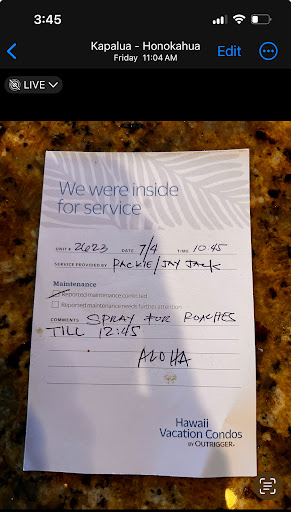 3:45
Kapalua - Honokahua
Friday 11:04 AM
Edit
LIVE
We were inside
for service
UNIT # 2623 DATE 7/4 TIME 10:45
SERVICE PROVIDED BY PACKIE/JAY JACK
Maintenance
Reported maintenance corrected
Reported maintenance needs further attention
COMMENTS SPRAY FOR ROACHES
TILL 12:45
ALOHA
Hawaii
Vacation Condos
BY OUTRIGGER